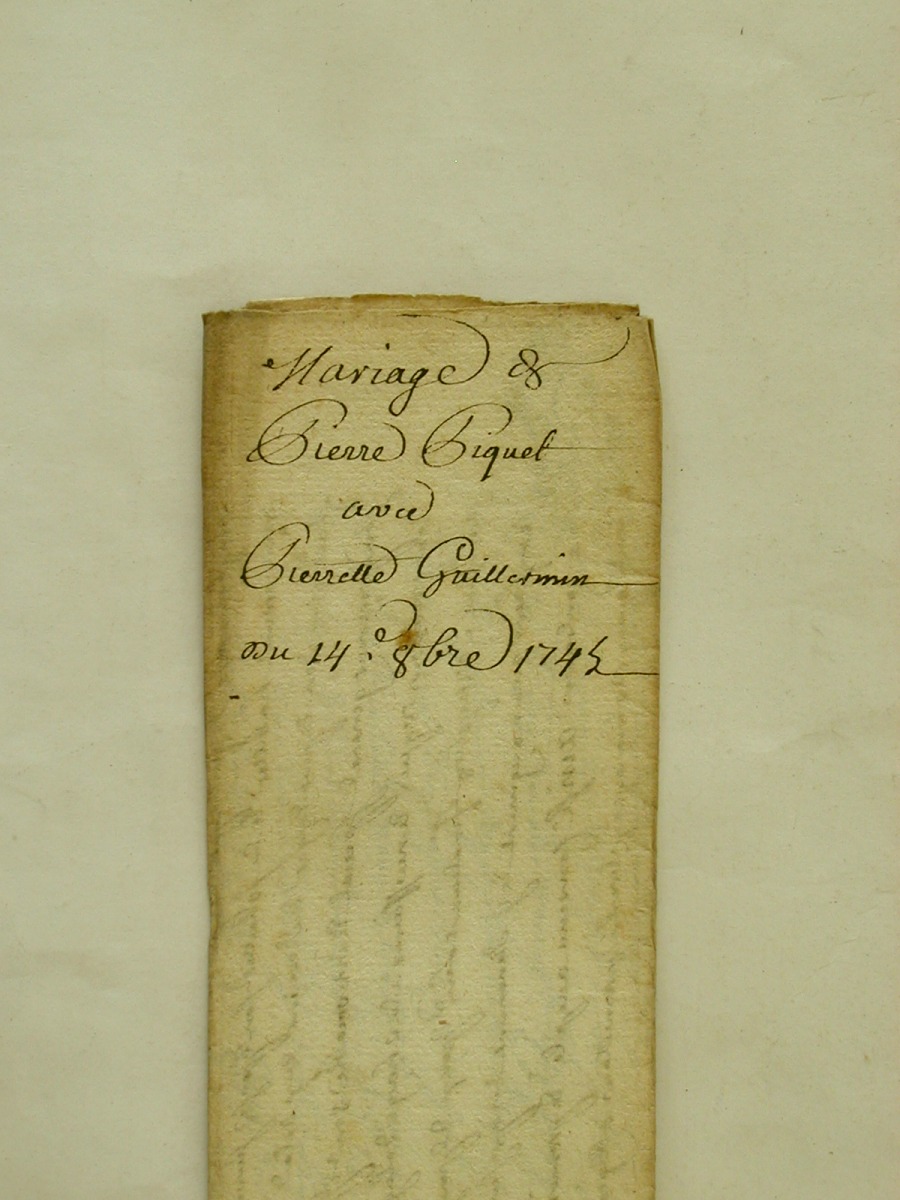 Mariage de
Pierre Piquet
avec
Pierrette Guillermin
Du 14e. 8bre 1745